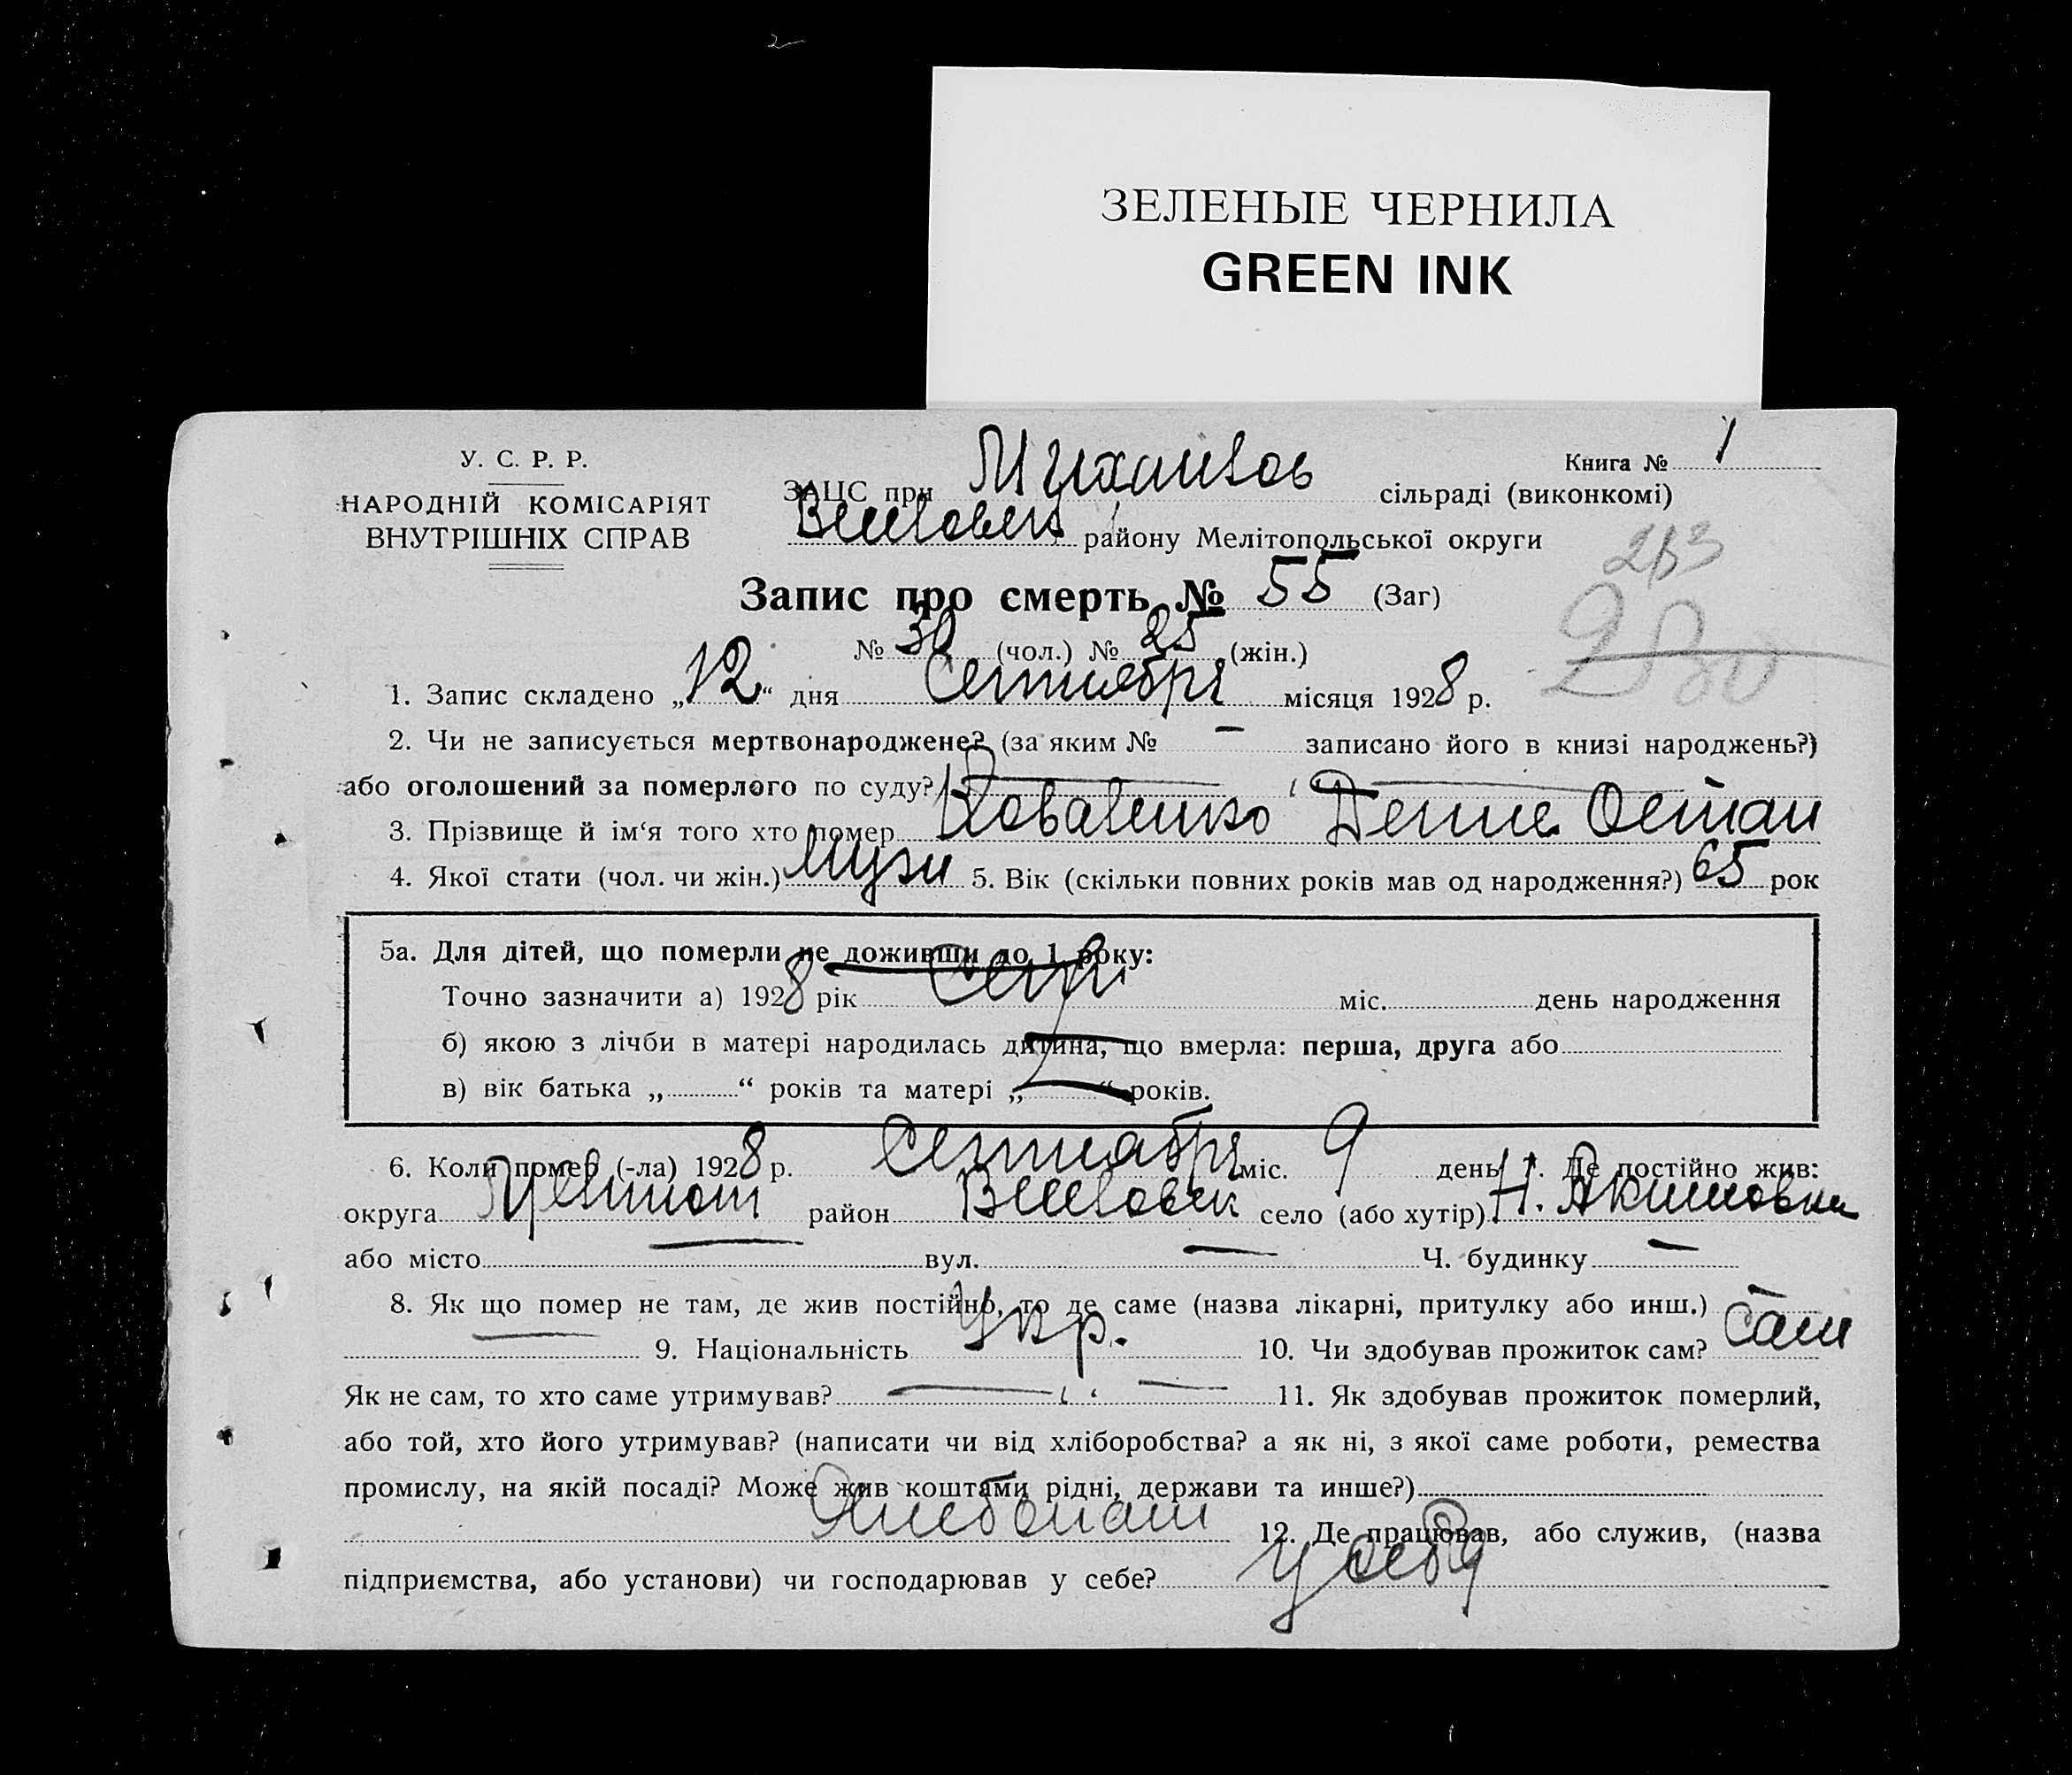 ЗЕЛЕНЫЕ ЧЕРНИЛА
GREEN INK
У. С. Р. Р.
НАРОДНІЙ КОМІСАРІЯТ
ВНУТРІШНІХ СПРАВ
Книга № 1
ЗАЦС при сільраді (виконкомі)
району Мелітопольської округи
Запис про смерть № 55 (Заг)
№ 30 (чол.) № 25 (жін.)
1. Запис складено „12“ дня Сентября місяця 1928 р.
2. Чи не записується мертвонароджене? (за яким № — записано його в книзі народжень?)
або оголошений за померлого по суду?
3. Прізвище й ім‘я того хто помер Коваленко
4. Якої стати (чол. чи жін.) Муж 5. Вік (скільки повних років мав од народження?) 65 рок
5а. Для дітей, що померли не доживши до 1 року:
Точно зазначити а) 1928 рік міс. день народження
б) якою з лічби в матері народилась дитина, що вмерла: перша, друга або
в) вік батька „ “ років та матері „ “ років.
6. Коли помер (-ла) 1928 р. Сентября міс. 9 день 7. Де постійно жив:
округа Мелитоп район село (або хутір) Н. Акимовка
або місто — вул. — Ч. будинку —
8. Як що помер не там, де жив постійно, то де саме (назва лікарні, притулку або инш.) —
9. Національність Укр. 10. Чи здобував прожиток сам? Сам
Як не сам, то хто саме утримував? — 11. Як здобував прожиток померлий,
або той, хто його утримував? (написати чи від хліборобства? а як ні, з якої саме роботи, ремества
промислу, на якій посаді? Може жив коштами рідні, держави та инше?)
12. Де працював, або служив, (назва
підприємства, або установи) чи господарював у себе? у себя